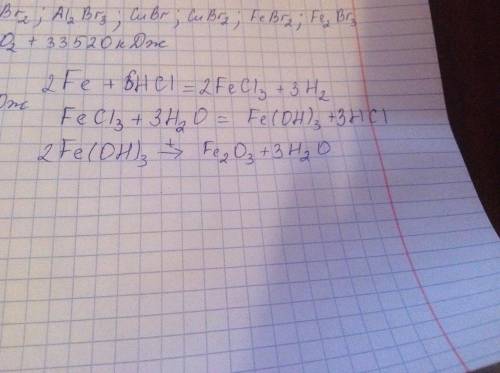 Br₂ ; Al₂Br₃ ; CuBr ; CuBr₂ ; FeBr₂ ; Fe₂Br₃
O₂ + 33520 кДж
2Fe + 6HCl = 2FeCl₃ + 3H₂
Дж
FeCl₃ + 3H₂O = Fe(OH)₃ + 3HCl
2Fe(OH)₃ →ᵗ Fe₂O₃ + 3H₂O